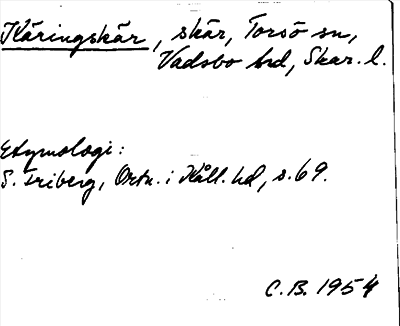 Käringskär, skär, Torsö sn,
Vadsbo hd, Skar. l.
Etymologi:
S. Friberg, Ortn. i Kåll. hd, s. 69.
C.B. 1954